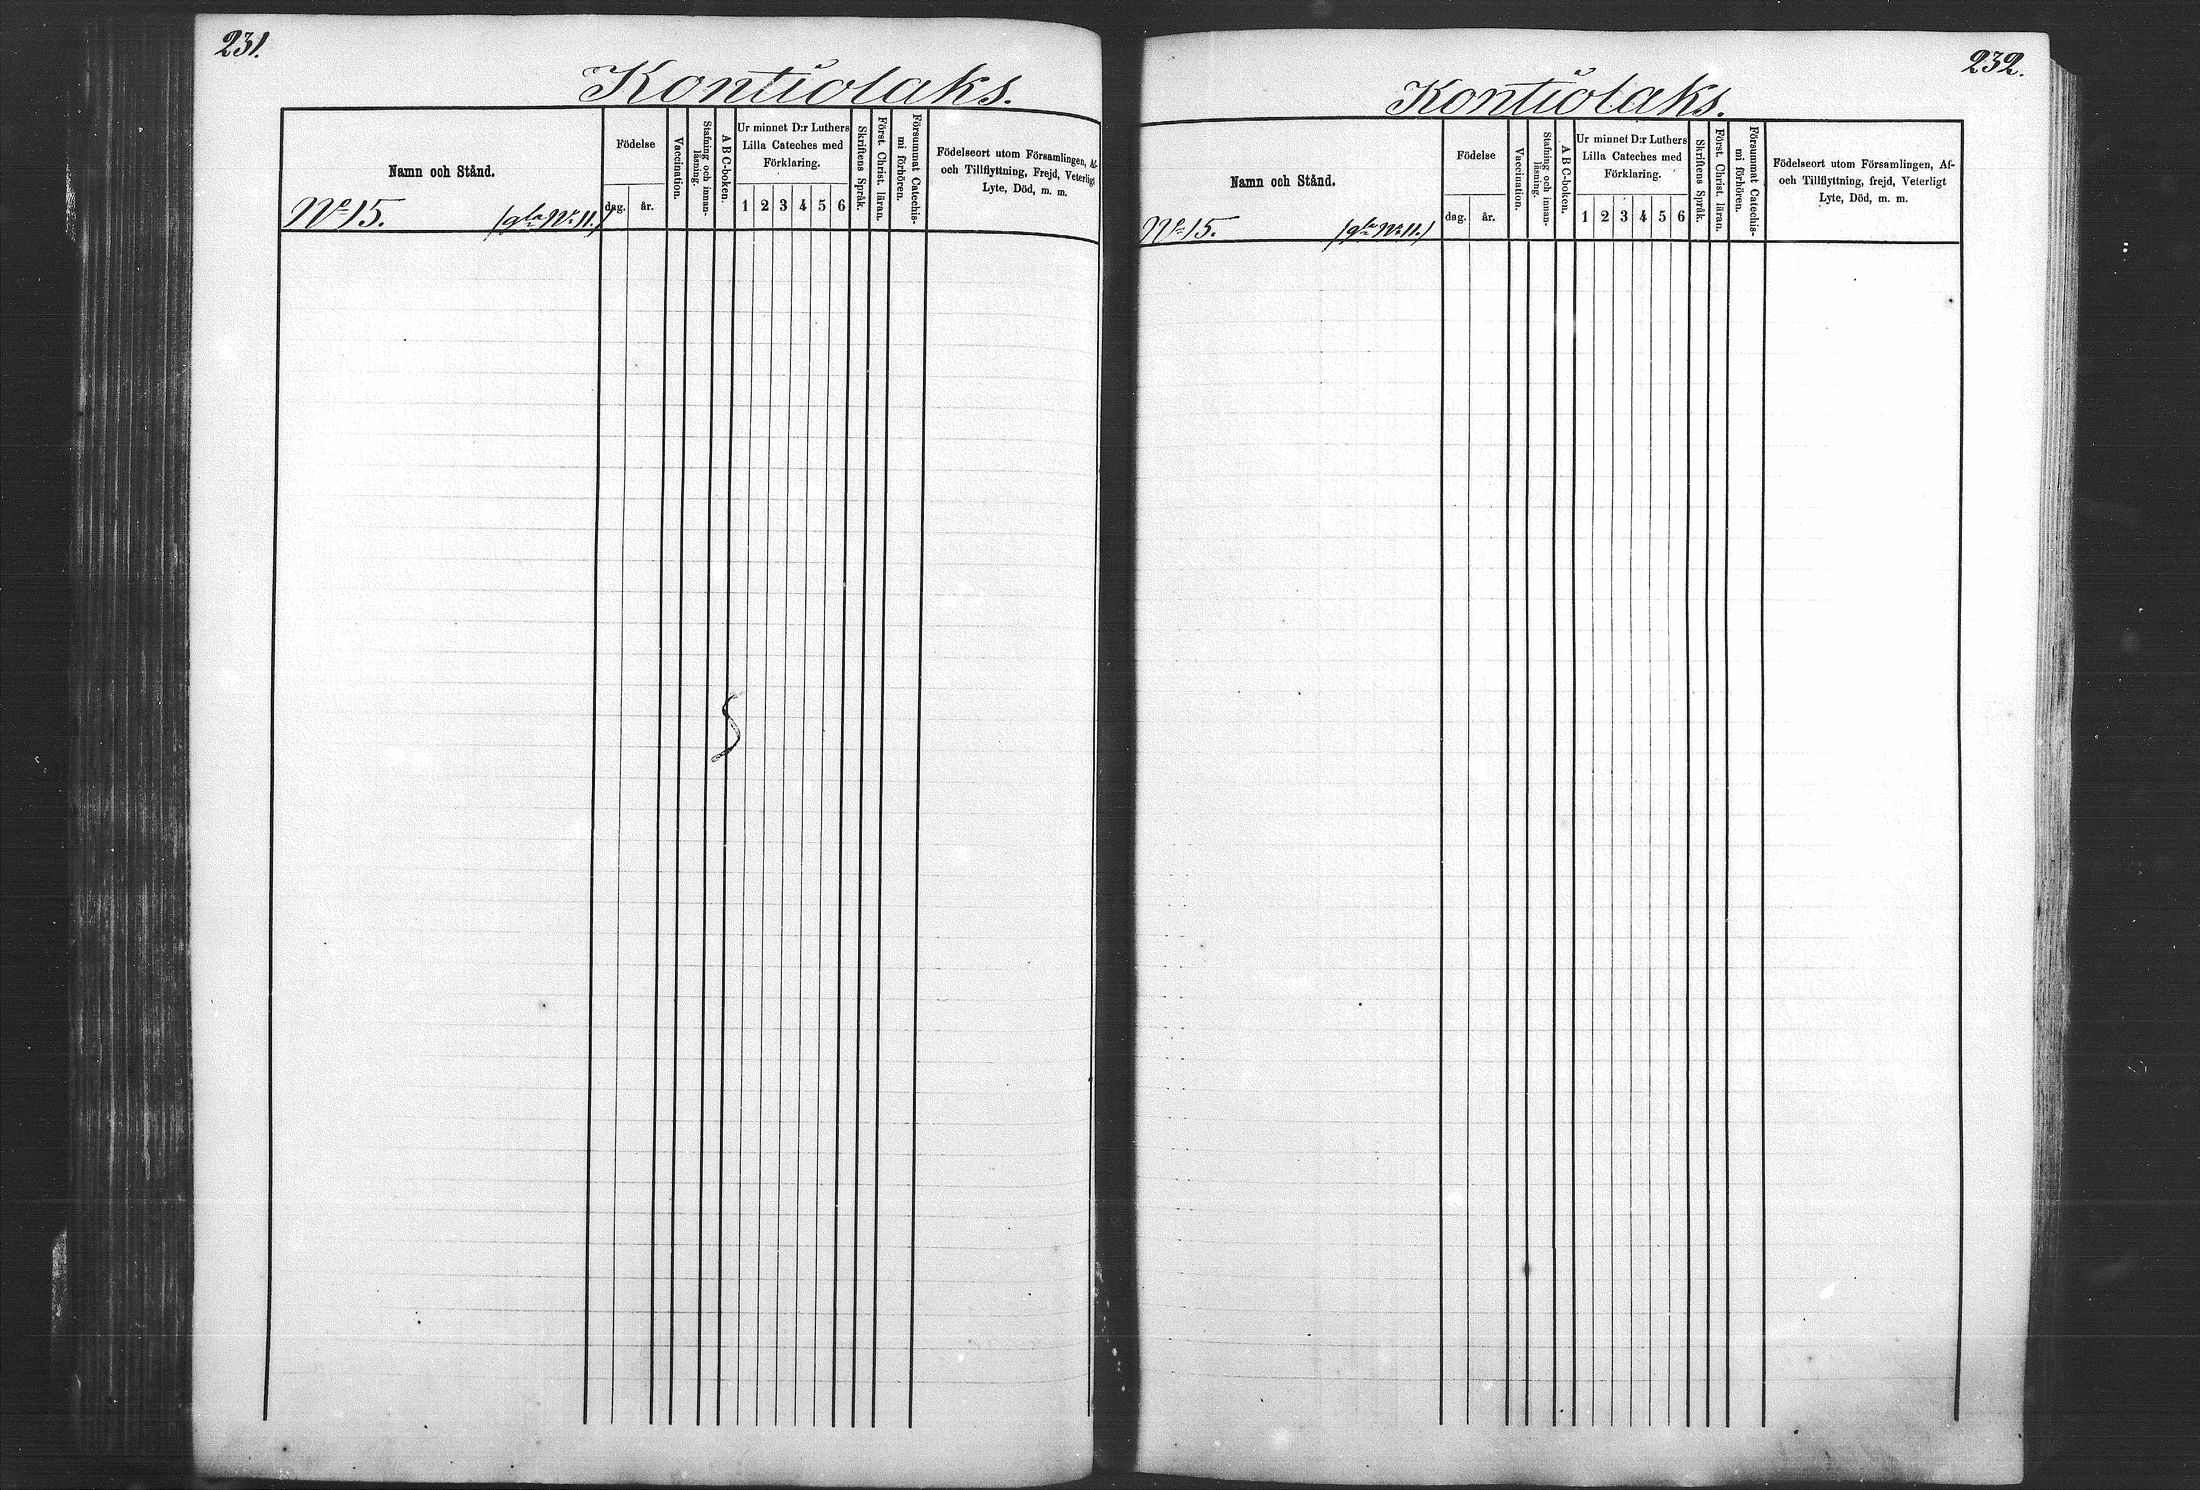 231.
Kontiolaks.
Namn och Stånd.
Födelse
dag.
år.
Vaccination.
Stafning och innan-
läsning.
A B C-boken.
Ur minnet D:r Luthers
Lilla Cateches med
Förklaring.
1 2 3 4 5 6
Skriftens Språk.
Först. Christ. läran.
Försummat Catechis-
mi förhören.
Födelseort utom Församlingen, Af-
och Tillflyttning, Frejd, Veterligt
Lyte, Död, m. m.
No 15. (gla No 11.)
232.
Kontiolaks.
Namn och Stånd.
Födelse
dag.
år.
Vaccination.
Stafning och innan-
läsning.
A B C-boken.
Ur minnet D:r Luthers
Lilla Cateches med
Förklaring.
1 2 3 4 5 6
Skriftens Språk.
Först. Christ. läran.
Försummat Catechis-
mi förhören.
Födelseort utom Församlingen, Af-
och Tillflyttning, frejd, Veterligt
Lyte, Död, m. m.
No 15. (gla No 11.)